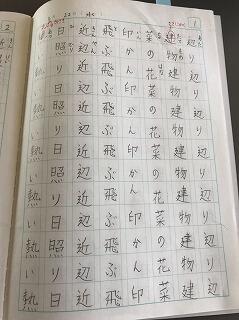 辺り辺り辺り辺り辺り辺り辺り辺
建物建物建物建物建物建物建物建
菜の花菜の花菜の花菜の花菜の花菜
印かん印かん印かん印かん印かん印
飛ぶ飛ぶ飛ぶ飛ぶ飛ぶ飛ぶ飛ぶ飛ぶ
近辺近辺近辺近辺近辺近辺近辺近辺
日昭り日昭り日昭り日昭り日昭り日
熱い熱い熱い熱い熱い熱い熱い熱